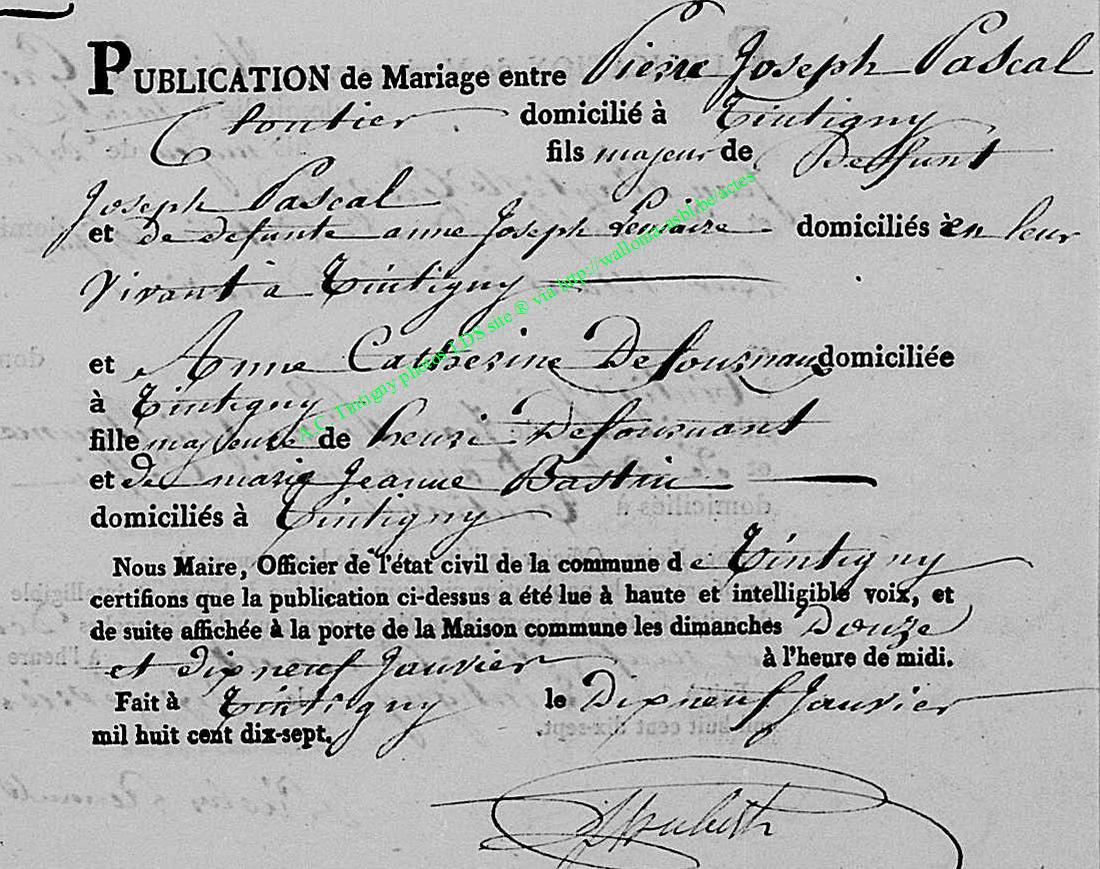 PUBLICATION de Mariage entre Pierre Joseph Pascal
Cloutier domicilié à Tintigny
fils majeur de Deffunt
Joseph Pascal
et de defunte anne Joseph Lemaire domiciliés à en leur
Vivant à Tintigny
et Anne Catherine Defournaux domiciliée
à Tintigny
fille majeure de henri Defournant
et de marie Jeanne Bastin
domiciliés à Tintigny
Nous Maire, Officier de l'état civil de la commune de Tintigny
certifions que la publication ci-dessus a été lue à haute et intelligible voix, et
de suite affichée à la porte de la Maison commune les dimanches Douze
et dix neuf Janvier à l'heure de midi.
Fait à Tintigny le Dix neuf Janvier
mil huit cent dix-sept.
A.C. Tintigny photos LDS site ® via http://wallonia-asbl.be/actes